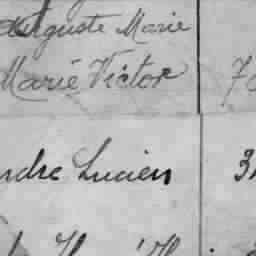 Auguste Marie
Marie Victor 7
ndre Lucien 3